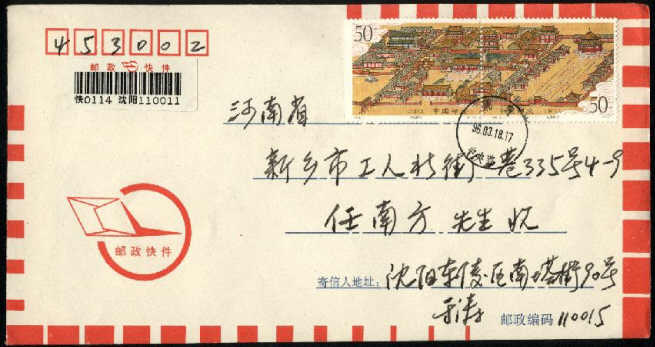 453002
50
邮政快件
快0114 沈阳110011
50
河南省
96.03.18.17
新乡市工人北街 巷335号4-9
任南方 先生收
邮政快件
寄信人地址: 沈阳东陵区南塔街90号
于涛
邮政编码 110015